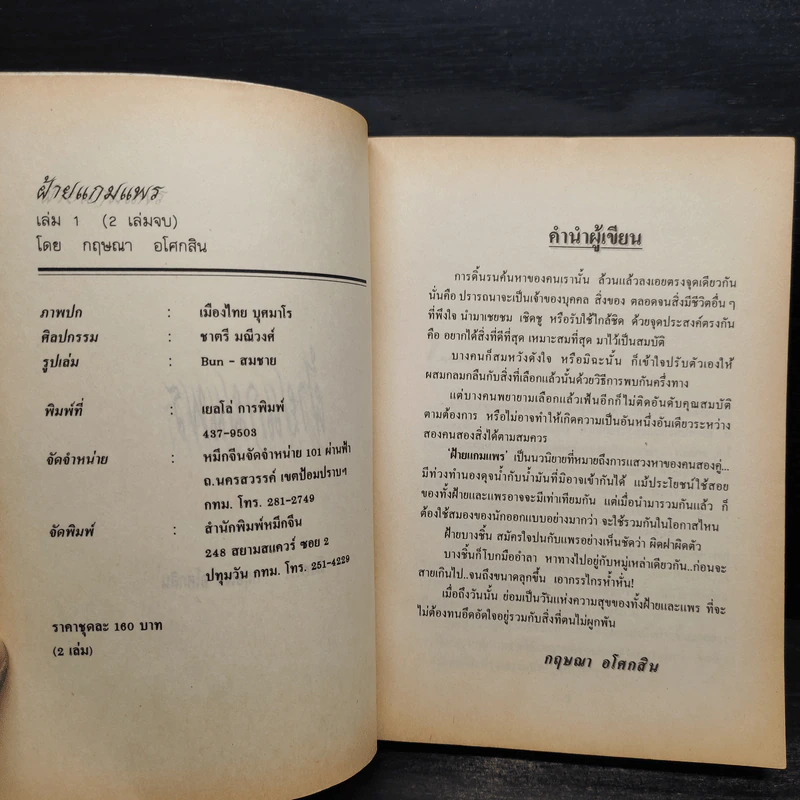 ฝ้ายแกมแพร
เล่ม 1 (2 เล่มจบ)
โดย กฤษณา อโศกสิน
ภาพปก : เมืองไทย บุศมาโร
ศิลปกรรม : ชาตรี มณีวงศ์
รูปเล่ม : Bun - สมชาย
พิมพ์ที่ : เยลโล่ การพิมพ์
437-9503
จัดจำหน่าย : หมึกจีนจัดจำหน่าย 101 ผ่านฟ้า
ถ.นครสวรรค์ เขตป้อมปราบฯ
กทม. โทร. 281-2749
จัดพิมพ์ : สำนักพิมพ์หมึกจีน
248 สยามสแควร์ ซอย 2
ปทุมวัน กทม. โทร. 251-4229
ราคาชุดละ 160 บาท
(2 เล่ม)
คำนำผู้เขียน
การดิ้นรนค้นหาของคนเรานั้น ล้วนแล้วลงเอยตรงจุดเดียวกัน
นั่นคือ ปรารถนาจะเป็นเจ้าของบุคคล สิ่งของ ตลอดจนสิ่งมีชีวิตอื่น ๆ
ที่พึงใจ นำมาเชยชม เชิดชู หรือรับใช้ใกล้ชิด ด้วยจุดประสงค์ตรงกัน
คือ อยากได้สิ่งที่ดีที่สุด เหมาะสมที่สุด มาไว้เป็นสมบัติ
บางคนก็สมหวังดังใจ หรือมิฉะนั้น ก็เข้าใจปรับตัวเองให้
ผสมกลมกลืนกับสิ่งที่เลือกแล้วนั้นด้วยวิธีการพบกันครึ่งทาง
แต่บางคนพยายามเลือกแล้วเฟ้นอีกก็ไม่ติดอันดับคุณสมบัติ
ตามต้องการ หรือไม่อาจทำให้เกิดความเป็นอันหนึ่งอันเดียวระหว่าง
สองคนสองสิ่งได้ตามสมควร
'ฝ้ายแกมแพร' เป็นนวนิยายที่หมายถึงการแสวงหาของคนสองคู่...
มีท่วงทำนองดุจน้ำกับน้ำมันที่มิอาจเข้ากันได้ แม้ประโยชน์ใช้สอย
ของทั้งฝ้ายและแพรอาจจะมีเท่าเทียมกัน แต่เมื่อนำมารวมกันแล้ว ก็
ต้องใช้สมองของนักออกแบบอย่างมากว่า จะใช้รวมกันในโอกาสไหน
ฝ้ายบางชิ้น สมัครใจปนกับแพรอย่างเห็นชัดว่า ผิดฝาผิดตัว
บางชิ้นก็โบกมืออำลา หาทางไปอยู่กับหมู่เหล่าเดียวกัน..ก่อนจะ
สายเกินไป..จนถึงขนาดลุกขึ้น เอากรรไกรห้ำหั่น!
เมื่อถึงวันนั้น ย่อมเป็นวันแห่งความสุขของทั้งฝ้ายและแพร ที่จะ
ไม่ต้องทนอึดอัดใจอยู่รวมกับสิ่งที่ตนไม่ผูกพัน
กฤษณา อโศกสิน